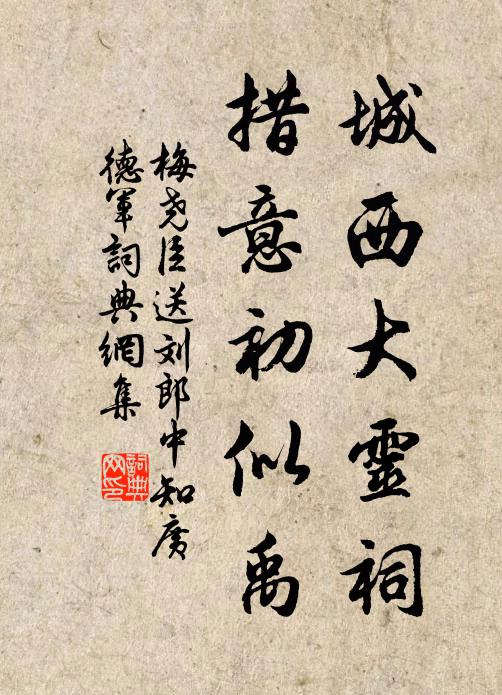 城西大靈祠
措意初似禹
梅尧臣送刘郎中知廣
德軍詞典網集
詞典
网印